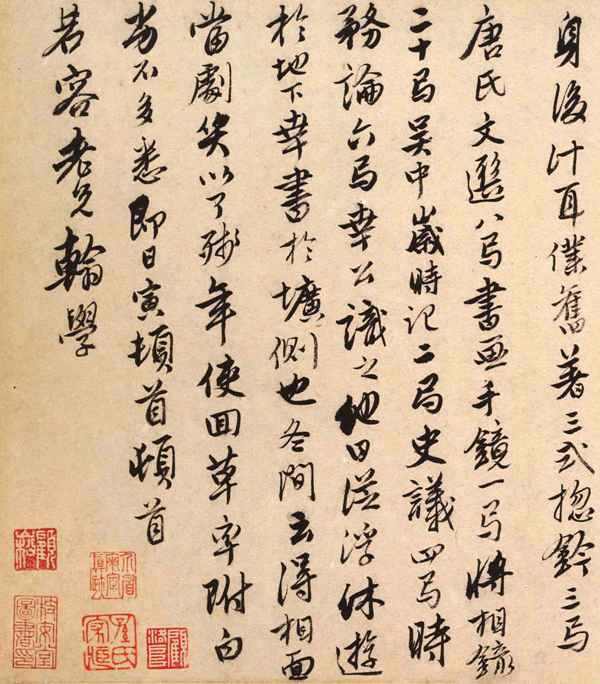 身後計耳僕舊著三式揔鈐三卷
唐氏文選八卷書畫手鏡一卷將相錄
二十卷吳中歲時記二卷史議四卷時
務論六卷幸公識之他日從浮休遊
於地下幸書於壙側也冬間云得相面
當劇笑以了殘年使回草率附白
不多悉即日寅頓首頓首
若容老兄翰學